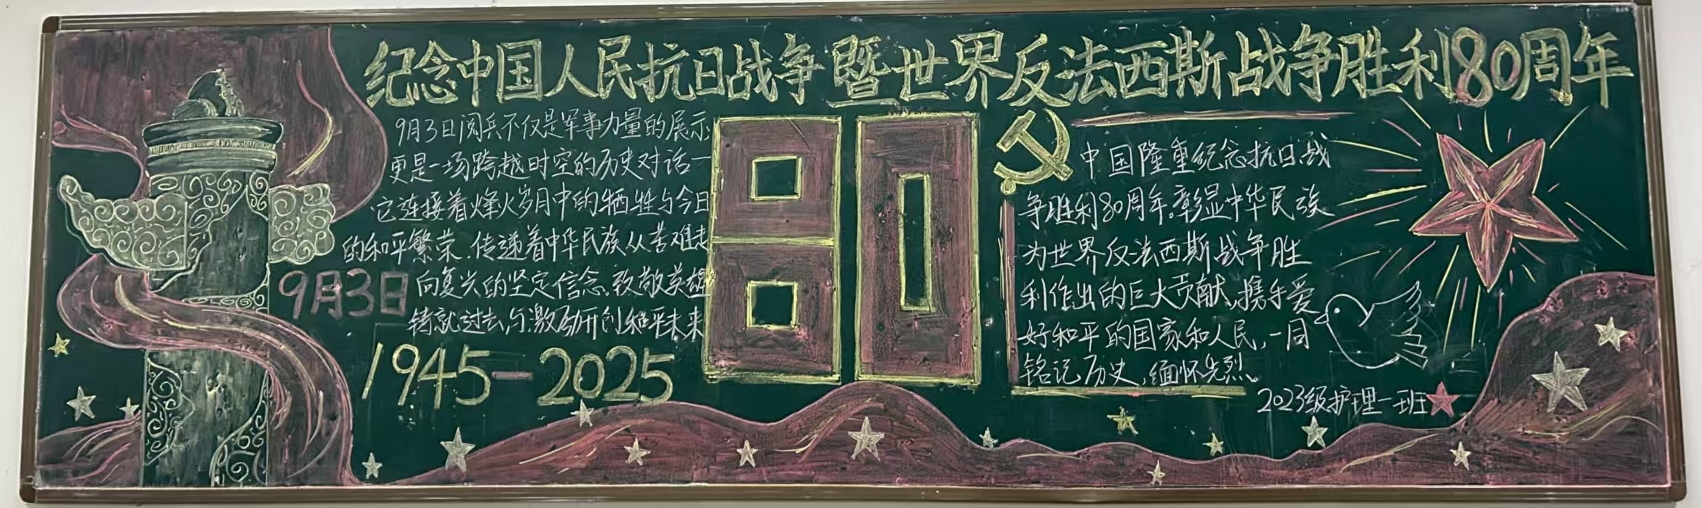 纪念中国人民抗日战争暨世界反法西斯战争胜利80周年
9月3日阅兵不仅是军事力量的展示
更是一场跨越时空的历史对话一
它连接着烽火岁月中的牺牲与今日
的和平繁荣.传递着中华民族从苦难走
向复兴的坚定信念.致敬英雄
铸就过去,与激励开创和平未来
9月3日
1945-2025
80
中国隆重纪念抗日战
争胜利80周年。彰显中华民族
为世界反法西斯战争胜
利作出的巨大贡献,携手爱
好和平的国家和人民,一同
铭记历史,缅怀先烈。
2023级护理一班